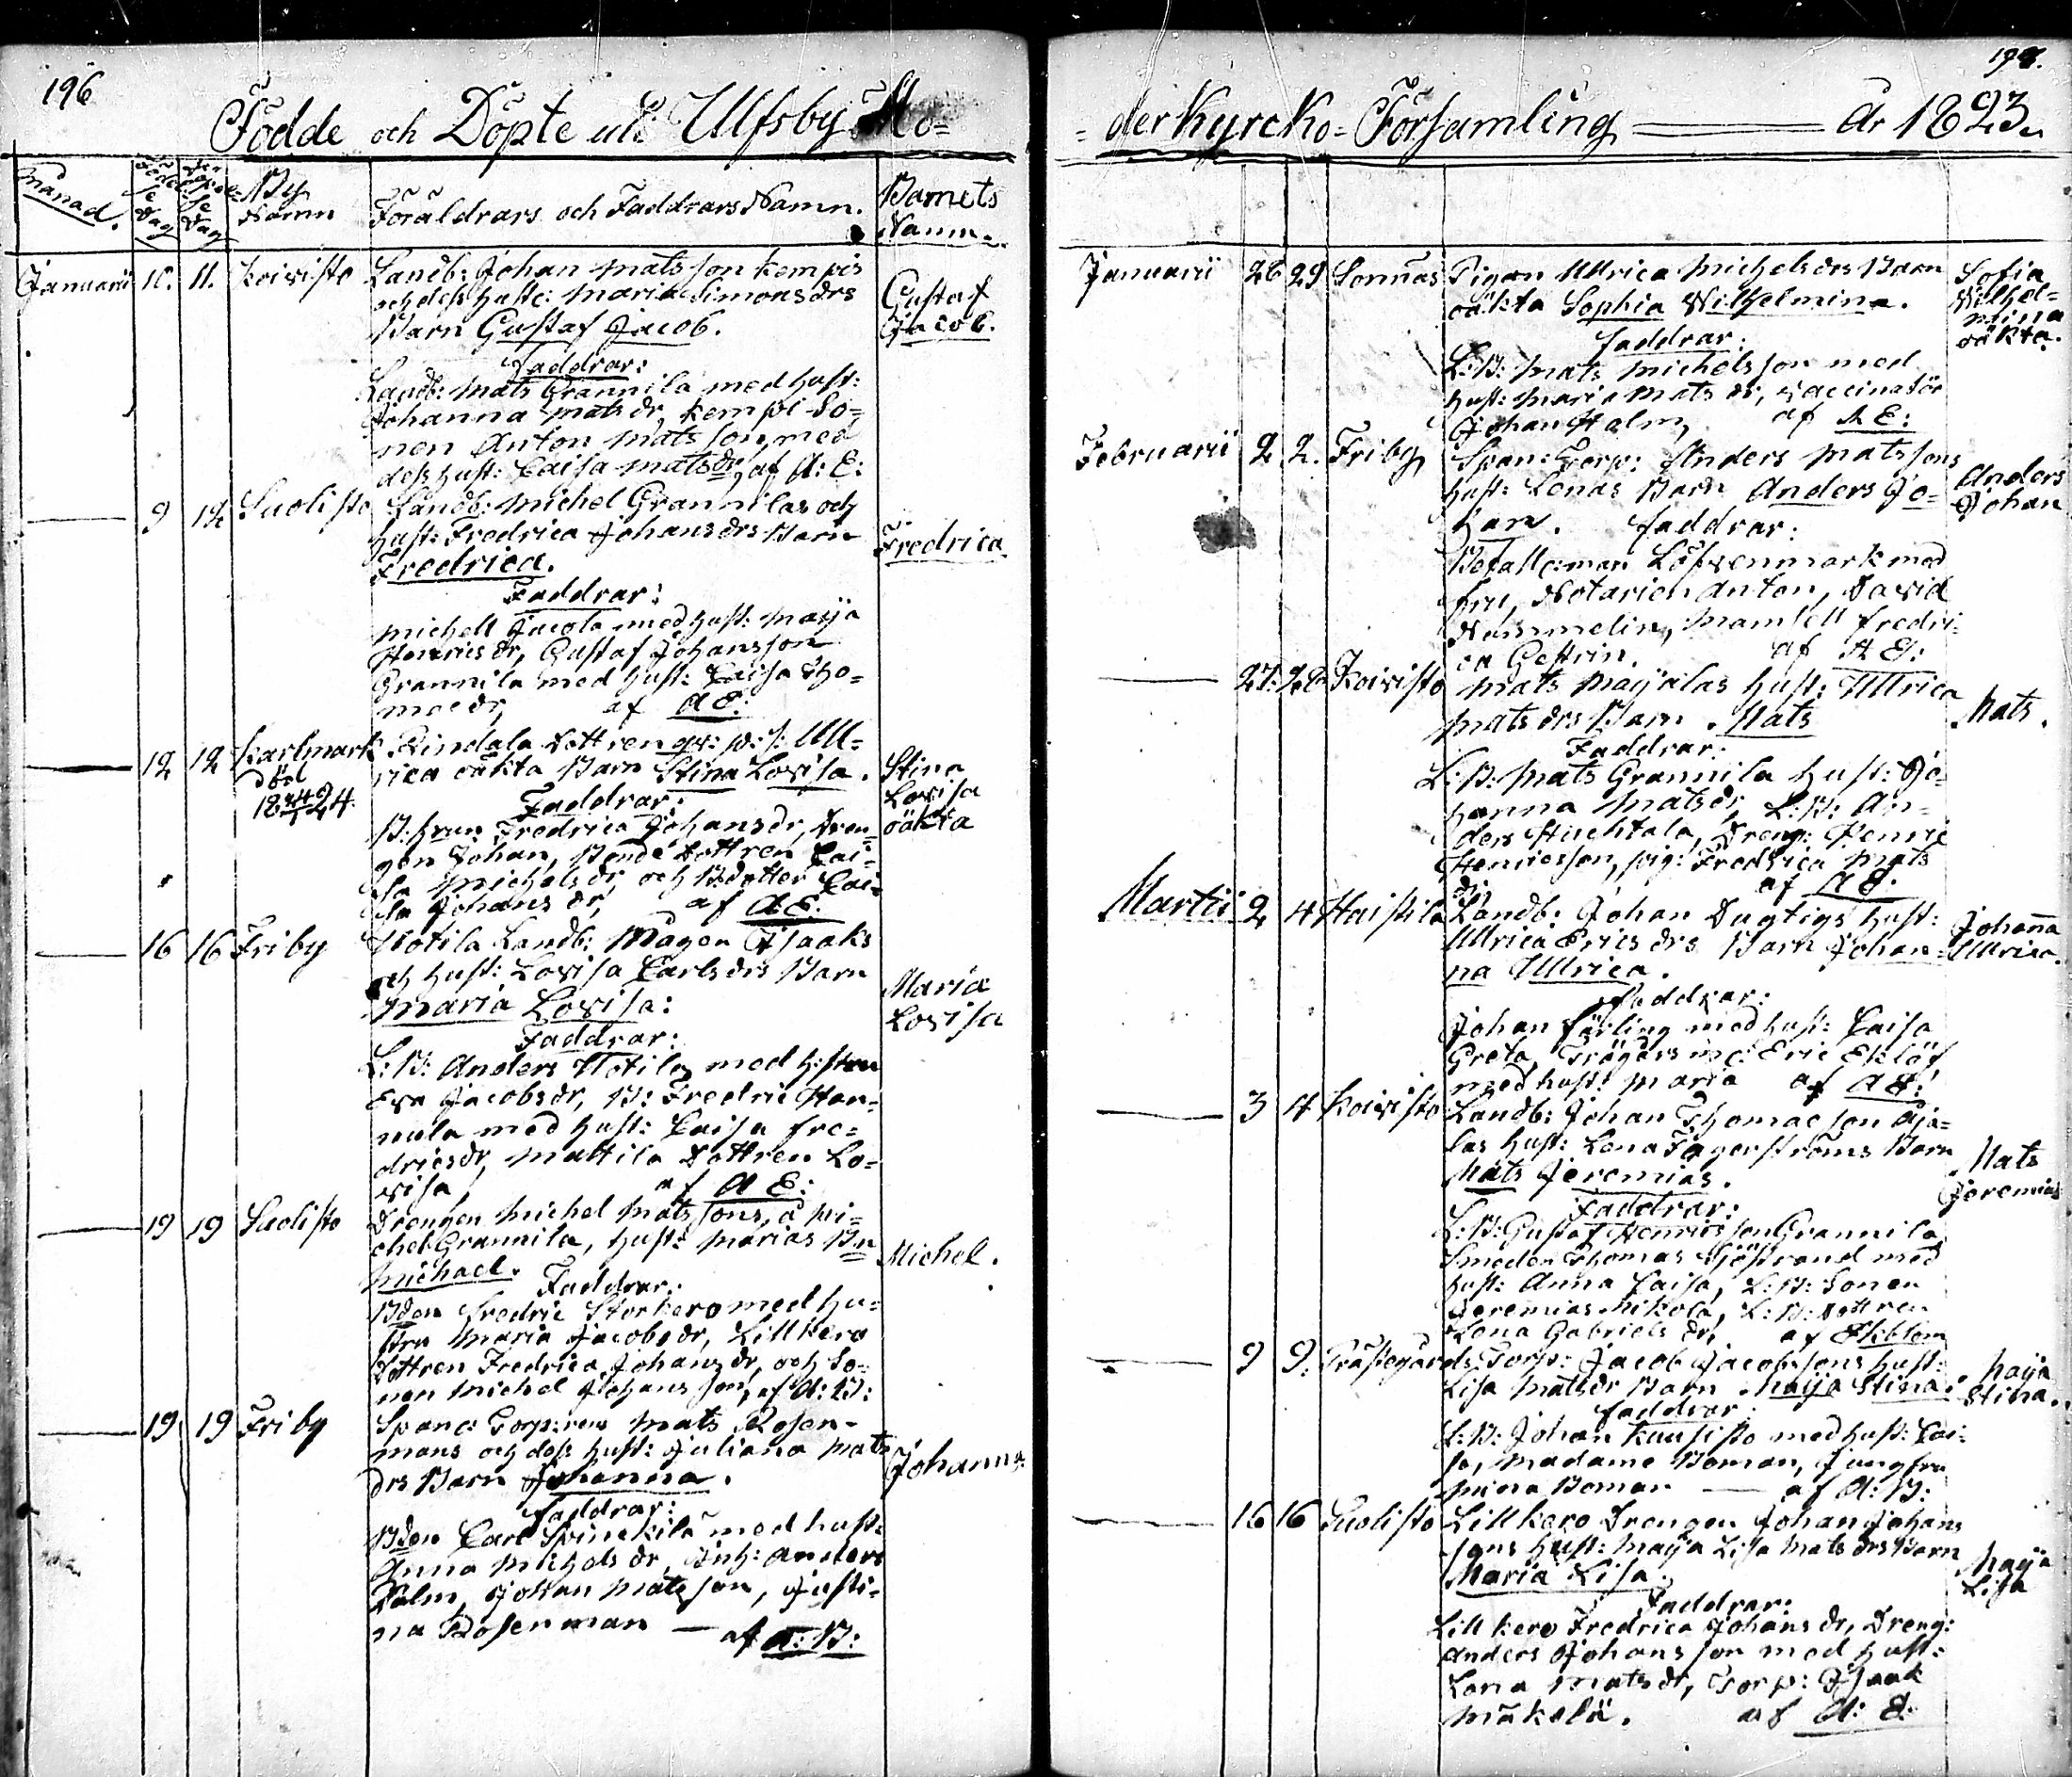 196
Födde och Döpte uti Ulfsby Mo=
Månad.
Födel
se
Dag
Döpel=
se
Dag
By
Namn
Föräldrars och Faddrars Namn.
Barnets
Namn.
Januarii 10. 11. Koivisto Landb: Johan Matsson Kempis
och dess hust: Maria Simonsdrs
Barn Gustaf Jacob.
Gustaf
Jacob.
Faddrar:
Landb: Mats Grannila med hust:
Johanna Matsdr, Kempi So=
nen Anton Matsson, med
dess hust: Caisa Matsdr, af A: E:
9 12 Suolisto Landb: Michel Grannilas och
hust: Fredrica Johansdrs Barn
Fredrica.
Fredrica
Faddrar:
Michell Jacola med hust: Maija
Henricsdr, Gustaf Johansson
Grannila med hust: Caisa Tho=
maedr, af A E:
12 12 Karlmark Rindala Dottren qv: p: s: Ull=
död
18 24
rica oäkta Barn Stina Lovisa.
Stina
Lovisa
oäkta
Faddrar:
B: hrun Fredrica Johansdr, Dren=
gen Johan, Bonde Dottren Cai=
sa Michelsdr, och B:dotter Cai=
sa Johansdr, af A: E:
16 16 Friby Hotila Landb: Magen Isaaks
och hust: Lovisa Carlsdrs Barn
Maria Lovisa:
Maria
Lovisa
Faddrar:
L: B: Anders Hotila med h:strun
Eva Jacobsdr, B: Fredric Han=
nula med hust: Caisa Fre=
dricsdr, Mattila Dottren Lo=
visa, af A E:
19 19 Suolisto Drengen Michel Matssons, å Mi=
chel Grannila, hust: Marias B:n
Michael.
Michel.
Faddrar:
B:den Fredric Storkero med hu=
stru Maria Jacobsdr, Lillkero
Dottren Fredrica Johansdr, och So=
nen Michel Johansson, af A: B:
19 19 Friby Spanc: Torp:ren Mats Rosen=
mans och dess hust: Juliana Mats
drs Barn Johanna.
Johanna
Faddrar:
B:den Carl Spinckila med hust:
Anna Michelsdr, Inh: Anders
Palm, Johan Matsson, Justi=
na Rosenman — af A: B:
197.
=der Kyrcko=Församling — År 1823.
Januarii 26 29 Sonnäs Pigan Ullrica Michelsdrs Barn
oäkta Sophia Wilhelmina.
Sofia
Wilhel=
mina
oäkta.
Faddrar:
L: B: Mats Michelsson med
hust: Maria Matsdr, Vaccinatör
Johan Holm, af A E:
Februarii 2 2. Friby Span: Torp: Anders Matssons
hust: Lenas Barn Anders Jo=
han. Faddrar:
Anders
Johan
Befall:man Löfvenmark med
fru, Notarien Anton, David
Nummelin, Mamsell Fredri=
ca Gestrin. af A E:
27. 28 Koivisto Mats Maijalas hust: Ullrica
Matsdrs Barn Mats
Mats.
Faddrar:
L: B: Mats Grannila hust: Jo=
hanna Matsdr, L: B: An=
ders Huchtala, Dreng: Henric
Henricsson, pig: Fredrica Mats
dr, af A E:
Martii 2 4 Haistila Landb: Johan Dugtigs hust:
Ullrica Ericsdrs Barn Johan=
na Ullrica.
Johanna
Ullrica.
Faddrar:
Johan Färling med hust: Caisa
Greta, Trägårsm: Eric Eklöf
med hust: Maria af A E:
3 4 Koivisto Landb: Johan Thomasson Aja=
las hust: Lena Fagerströms Barn
Mats Jeremias.
Mats
Jeremias
Faddrar:
L: B: Gustaf Henricsson Grannila
Smeden Thomas Sjöstrand med
hust: Anna Caisa, L: B: Sonen
Jeremias Mikola, L: B: Dottren
Lena Gabrielsdr, af Ekblom
9 9. Prästegårds Torp: Jacob Jacobssons hust:
Lisa Matsdr Barn Maija Stina.
Maija
Stina.
Faddrar:
L: B: Johan Kuusisto med hust: Cai=
sa, Madame Boman, Jungfru
Mina Boman — af A: B:
16 16 Suolisto Lillkero Drengen Johan Johans
sons hust: Maija Lisa Matsdrs Barn
Maria Lisa.
Maija
Lisa
Faddrar:
Lillkero Fredrica Johansdr, Dreng:
Anders Johansson med hust:
Lena Matsdr, Torp: Isaak
Mäkelä. af A: E: